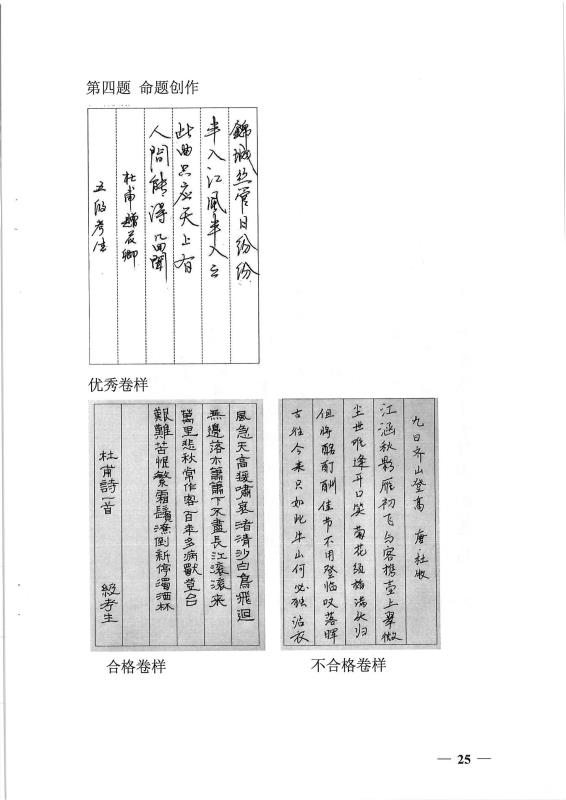 第四题 命题创作
錦城丝管日纷纷
半入江風半入云
此曲只应天上有
人間能得几回聞
杜甫贈花卿
五级考生
优秀卷样
風急天高猨嘯哀渚清沙白鳥飛迴
無邊落木蕭蕭下不盡長江滾滾来
萬里悲秋常作客百年多病獨登台
艱難苦恨繁霜鬢潦倒新停濁酒杯
杜甫詩一首
级考生
合格卷样
九日齐山登高 唐杜牧
江涵秋影雁初飞与客携壶上翠微
尘世难逢开口笑菊花须插满头归
但将酩酊酬佳节不用登临叹落晖
古往今来只如此牛山何必独沾衣
不合格卷样
— 25 —